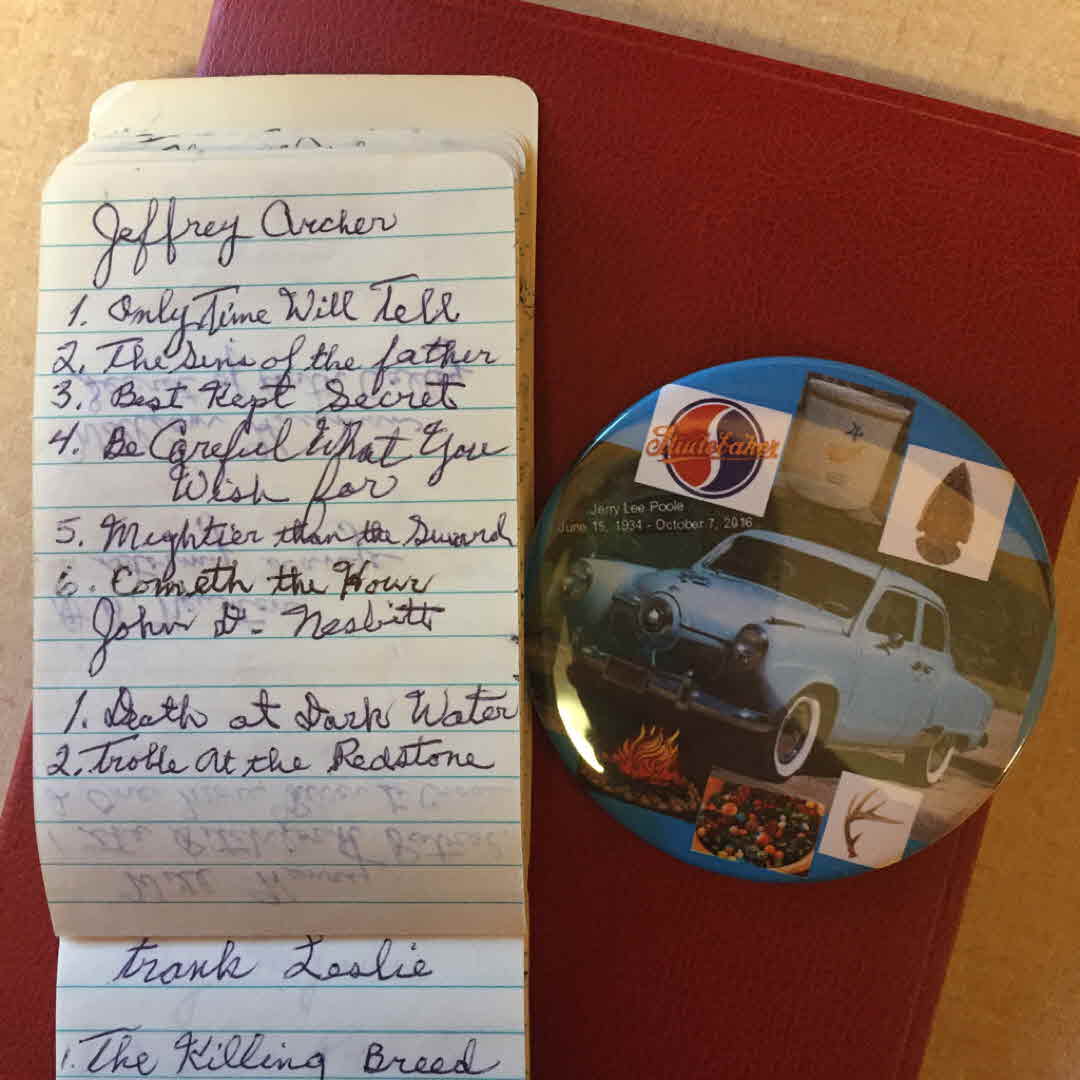 Jeffrey Archer
1. Only Time Will Tell
2. The Sins of the father
3. Best Kept Secret
4. Be Careful What You
Wish for
5. Mightier than the Sword
6. Cometh the Hour
John D. Nesbitt
1. Death at Dark Water
2. Troble at the Redstone
Frank Leslie
1. The Killing Breed
Studebaker
Jerry Lee Poole
June 15, 1934 - October 7, 2016